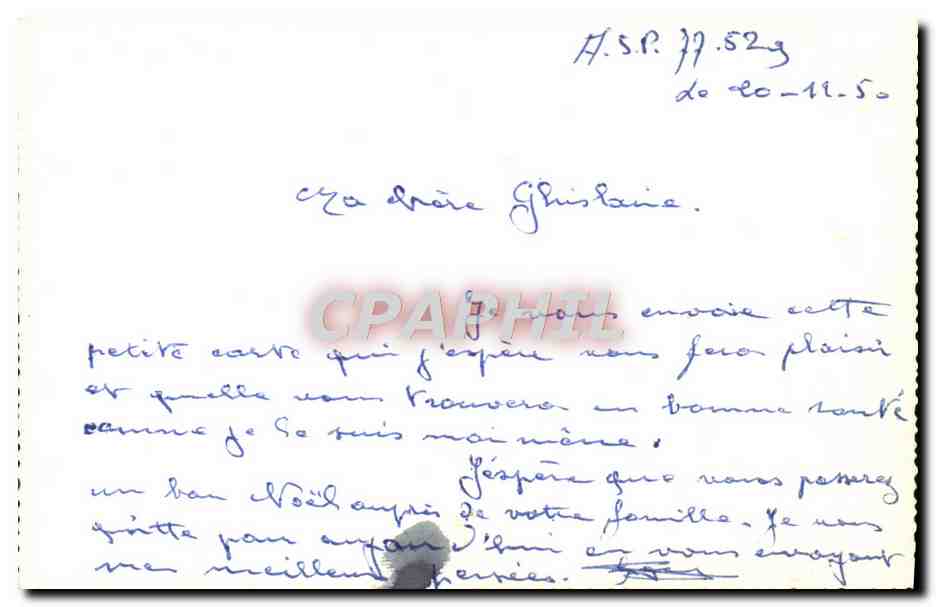 S.P. 77.529
Le 20-12-50
Ma chère Ghislaine.
CPAPHIL
Je vous envoie cette
petite carte qui j'espère vous fera plaisir
et quelle vous trouvera en bonne santé
comme je le suis moi même.
J'éspère que vous passerez
un bon Noël auprès de votre famille. Je vous
quitte pour aujourd'hui en vous envoyant
mes meilleurs pensées.